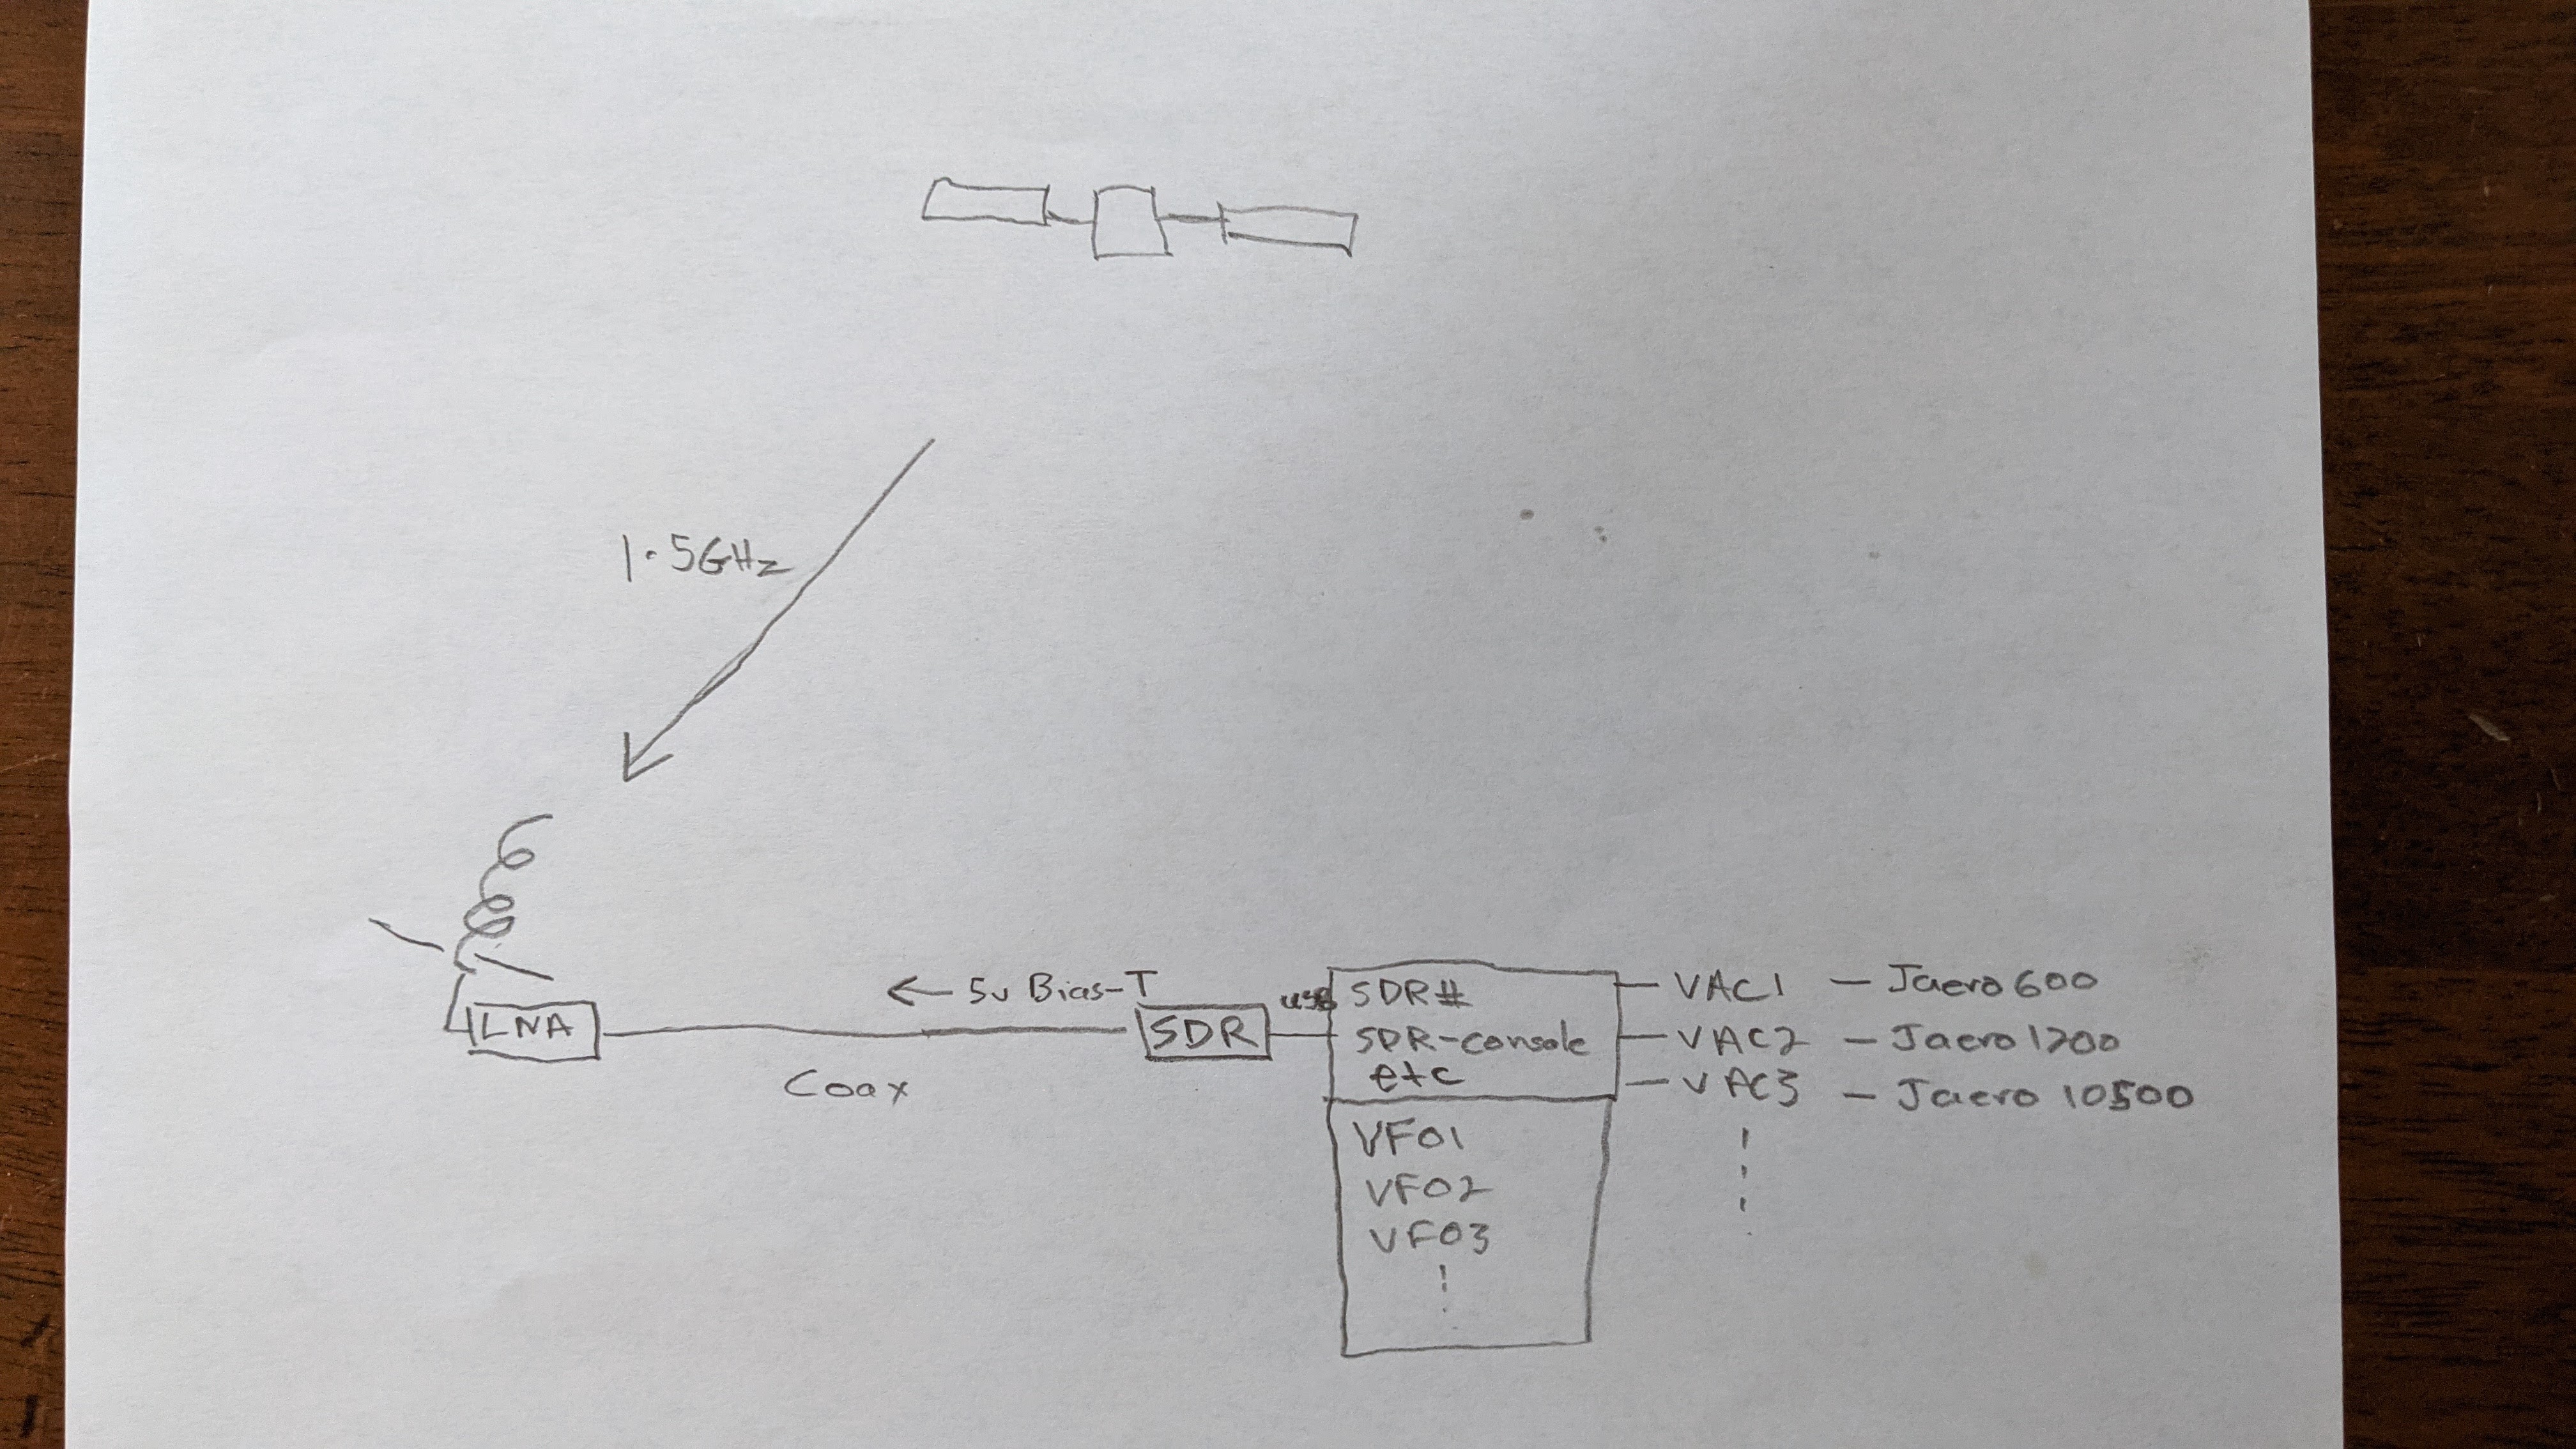 1.5GHz
← 5v Bias-T
LNA
Coax
SDR
USB
SDR#
SDR-console
etc
VFO1
VFO2
VFO3
VAC1 — Jaero 600
VAC2 — Jaero 1200
VAC3 — Jaero 10500